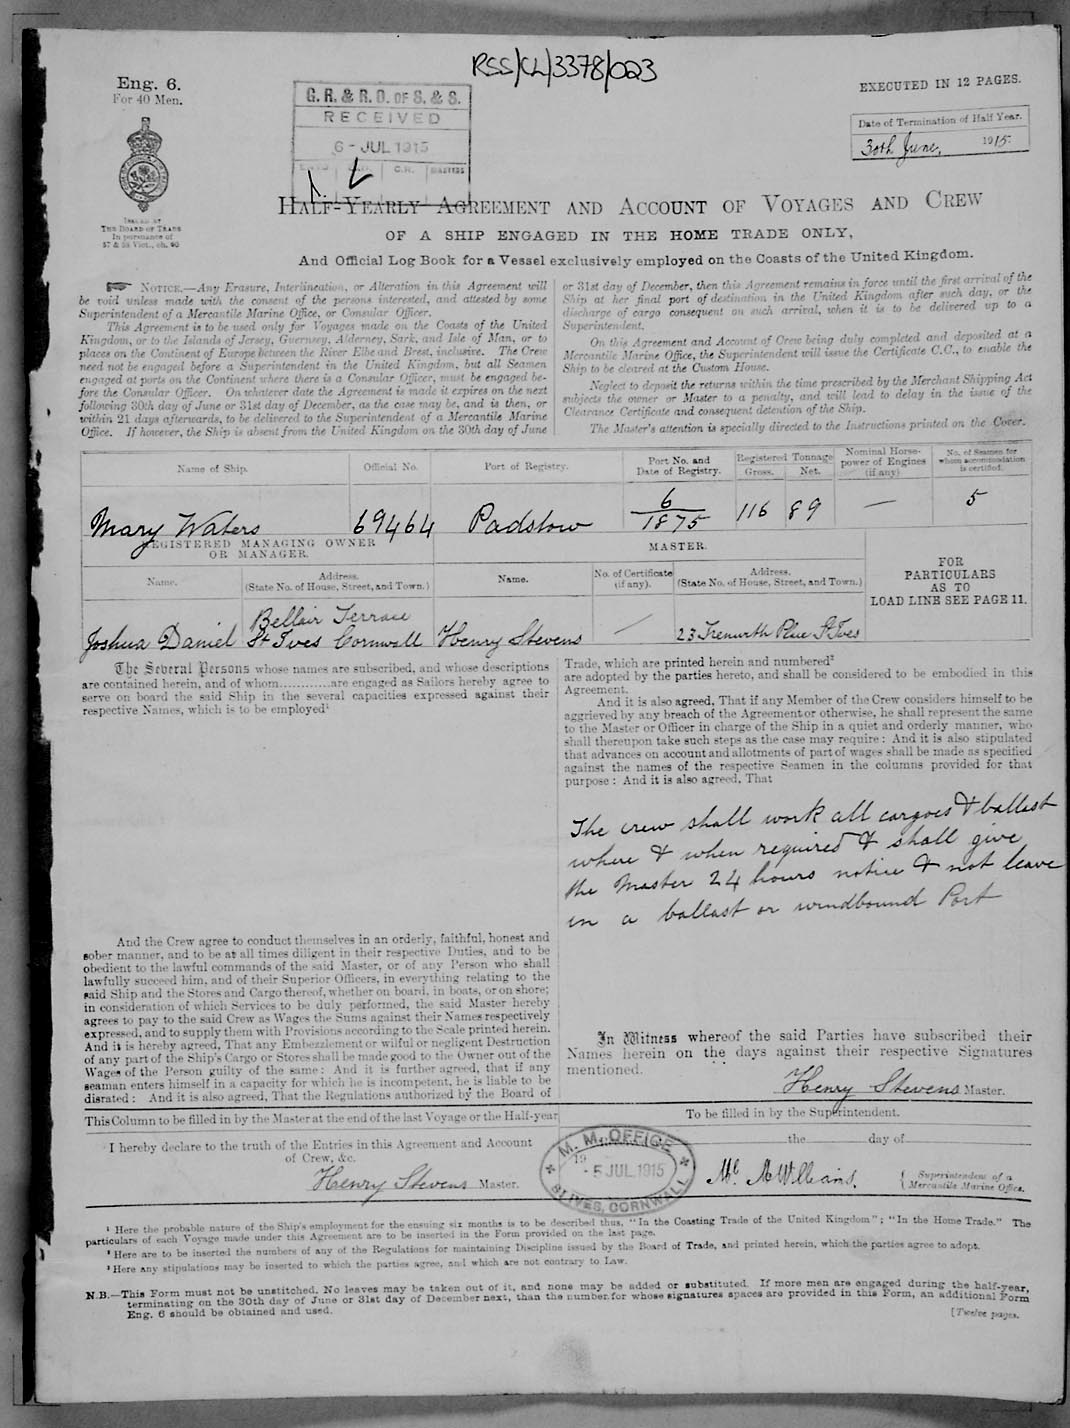 RSS/CL/3378/023
Eng. 6.
For 40 Men.
G. R. & R. O. OF S. & S.
RECEIVED
6 - JUL 1915
C.R. MASTERS
EXECUTED IN 12 PAGES.
Date of Termination of Half Year.
30th June, 1915.
ISSUED BY
THE BOARD OF TRADE
In pursuance of
57 & 58 Vict., ch. 60
HALF-YEARLY AGREEMENT AND ACCOUNT OF VOYAGES AND CREW
OF A SHIP ENGAGED IN THE HOME TRADE ONLY,
And Official Log Book for a Vessel exclusively employed on the Coasts of the United Kingdom.
NOTICE.—Any Erasure, Interlineation, or Alteration in this Agreement will
be void unless made with the consent of the persons interested, and attested by some
Superintendent of a Mercantile Marine Office, or Consular Officer.
This Agreement is to be used only for Voyages made on the Coasts of the United
Kingdom, or to the Islands of Jersey, Guernsey, Alderney, Sark, and Isle of Man, or to
places on the Continent of Europe between the River Elbe and Brest, inclusive. The Crew
need not be engaged before a Superintendent in the United Kingdom, but all Seamen
engaged at ports on the Continent where there is a Consular Officer, must be engaged be-
fore the Consular Officer. On whatever date the Agreement is made it expires on the next
following 30th day of June or 31st day of December, as the case may be, and is then, or
within 21 days afterwards, to be delivered to the Superintendent of a Mercantile Marine
Office. If however, the Ship is absent from the United Kingdom on the 30th day of June
or 31st day of December, then this Agreement remains in force until the first arrival of the
Ship at her final port of destination in the United Kingdom after such day, or the
discharge of cargo consequent on such arrival, when it is to be delivered up to a
Superintendent.
On this Agreement and Account of Crew being duly completed and deposited at a
Mercantile Marine Office, the Superintendent will issue the Certificate C.C., to enable the
Ship to be cleared at the Custom House.
Neglect to deposit the returns within the time prescribed by the Merchant Shipping Act
subjects the owner or Master to a penalty, and will lead to delay in the issue of the
Clearance Certificate and consequent detention of the Ship.
The Master's attention is specially directed to the Instructions printed on the Cover.
Name of Ship. Official No. Port of Registry. Port No. and Date of Registry. Registered Tonnage Gross. Net. Nominal Horse-power of Engines (if any) No. of Seamen for whom accommodation is certified.
Mary Waters 69464 Padstow 6/1875 116 89 — 5
REGISTERED MANAGING OWNER
OR MANAGER.
MASTER.
Name. Address. (State No. of House, Street, and Town.) Name. No. of Certificate (if any). Address. (State No. of House, Street, and Town.)
FOR
PARTICULARS
AS TO
LOAD LINE SEE PAGE 11.
Joshua Daniel Bellair Terrace St Ives Cornwall Henry Stevens — 23 Trenwith Place St Ives
The Several Persons whose names are subscribed, and whose descriptions
are contained herein, and of whom............are engaged as Sailors hereby agree to
serve on board the said Ship in the several capacities expressed against their
respective Names, which is to be employed¹
And the Crew agree to conduct themselves in an orderly, faithful, honest and
sober manner, and to be at all times diligent in their respective Duties, and to be
obedient to the lawful commands of the said Master, or of any Person who shall
lawfully succeed him, and of their Superior Officers, in everything relating to the
said Ship and the Stores and Cargo thereof, whether on board, in boats, or on shore;
in consideration of which Services to be duly performed, the said Master hereby
agrees to pay to the said Crew as Wages the Sums against their Names respectively
expressed, and to supply them with Provisions according to the Scale printed herein.
And it is hereby agreed, That any Embezzlement or wilful or negligent Destruction
of any part of the Ship's Cargo or Stores shall be made good to the Owner out of the
Wages of the Person guilty of the same: And it is further agreed, that if any
seaman enters himself in a capacity for which he is incompetent, he is liable to be
disrated: And it is also agreed, That the Regulations authorized by the Board of
Trade, which are printed herein and numbered²
are adopted by the parties hereto, and shall be considered to be embodied in this
Agreement.
And it is also agreed, That if any Member of the Crew considers himself to be
aggrieved by any breach of the Agreement or otherwise, he shall represent the same
to the Master or Officer in charge of the Ship in a quiet and orderly manner, who
shall thereupon take such steps as the case may require: And it is also stipulated
that advances on account and allotments of part of wages shall be made as specified
against the names of the respective Seamen in the columns provided for that
purpose: And it is also agreed, That
The crew shall work all cargoes & ballast
where & when required & shall give
the Master 24 hours notice & not leave
in a ballast or windbound Port
In Witness whereof the said Parties have subscribed their
Names herein on the days against their respective Signatures
mentioned.
Henry Stevens Master.
This Column to be filled in by the Master at the end of the last Voyage or the Half-year
I hereby declare to the truth of the Entries in this Agreement and Account
of Crew, &c.
Henry Stevens Master.
To be filled in by the Superintendent.
the day of
19
M. M. OFFICE
- 5 JUL 1915
ST IVES, CORNWALL
Superintendent of a
Mercantile Marine Office.
¹ Here the probable nature of the Ship's employment for the ensuing six months is to be described thus, "In the Coasting Trade of the United Kingdom"; "In the Home Trade." The
particulars of each Voyage made under this Agreement are to be inserted in the Form provided on the last page.
² Here are to be inserted the numbers of any of the Regulations for maintaining Discipline issued by the Board of Trade, and printed herein, which the parties agree to adopt.
³ Here any stipulations may be inserted to which the parties agree, and which are not contrary to Law.
N.B.—This Form must not be unstitched. No leaves may be taken out of it, and none may be added or substituted. If more men are engaged during the half-year,
terminating on the 30th day of June or 31st day of December next, than the number for whose signatures spaces are provided in this Form, an additional Form
Eng. 6 should be obtained and used.
[Twelve pages.